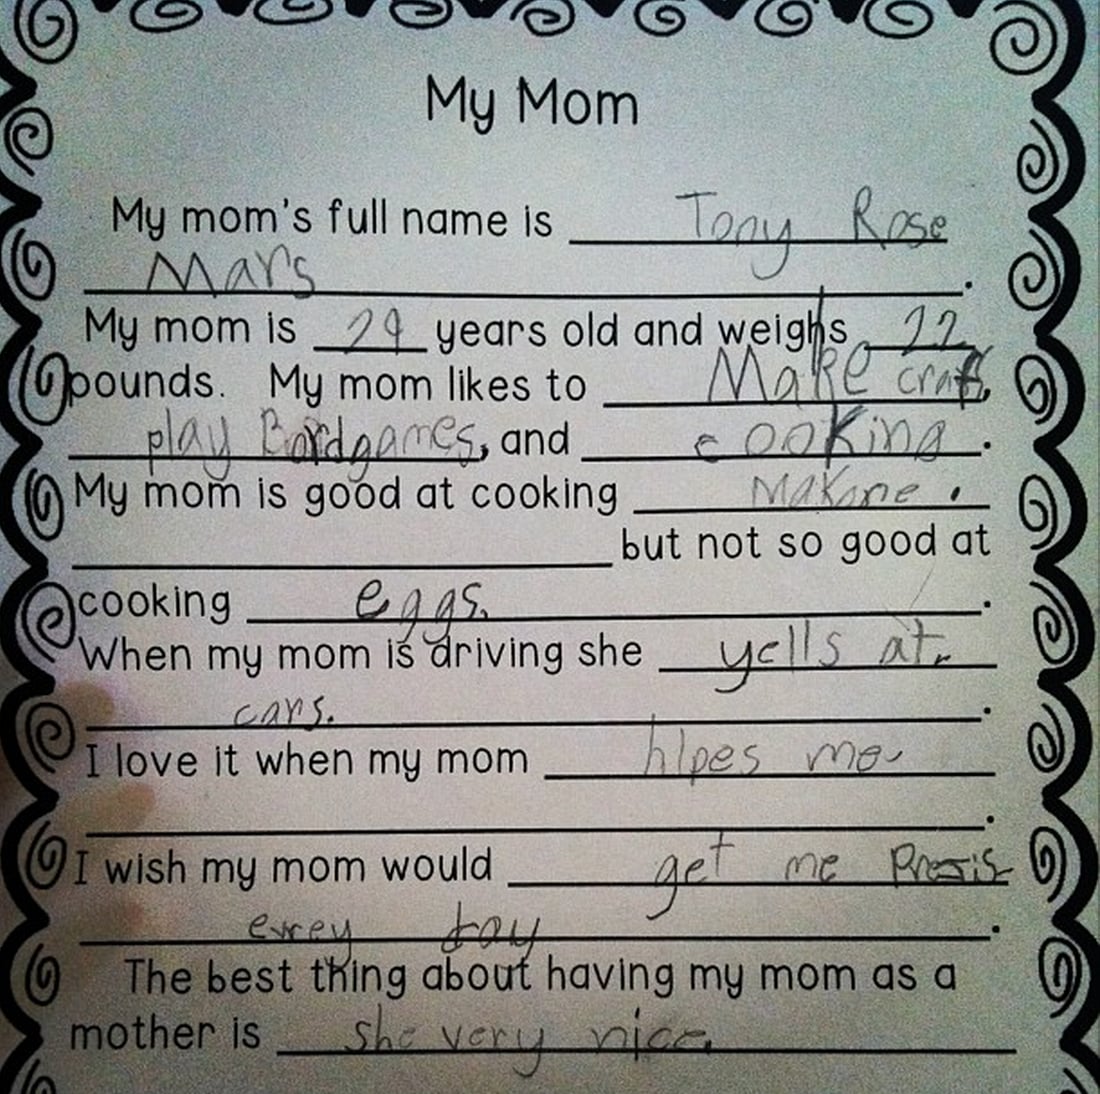 My Mom
My mom's full name is Tony Rose
Mars.
My mom is 29 years old and weighs 22
pounds. My mom likes to Make craft,
play Bordgames, and cooking.
My mom is good at cooking Makrone.
but not so good at
cooking eggs.
When my mom is driving she yells at
cars.
I love it when my mom hlpes me
.
I wish my mom would get me Presis
evrey day.
The best thing about having my mom as a
mother is she very nice.